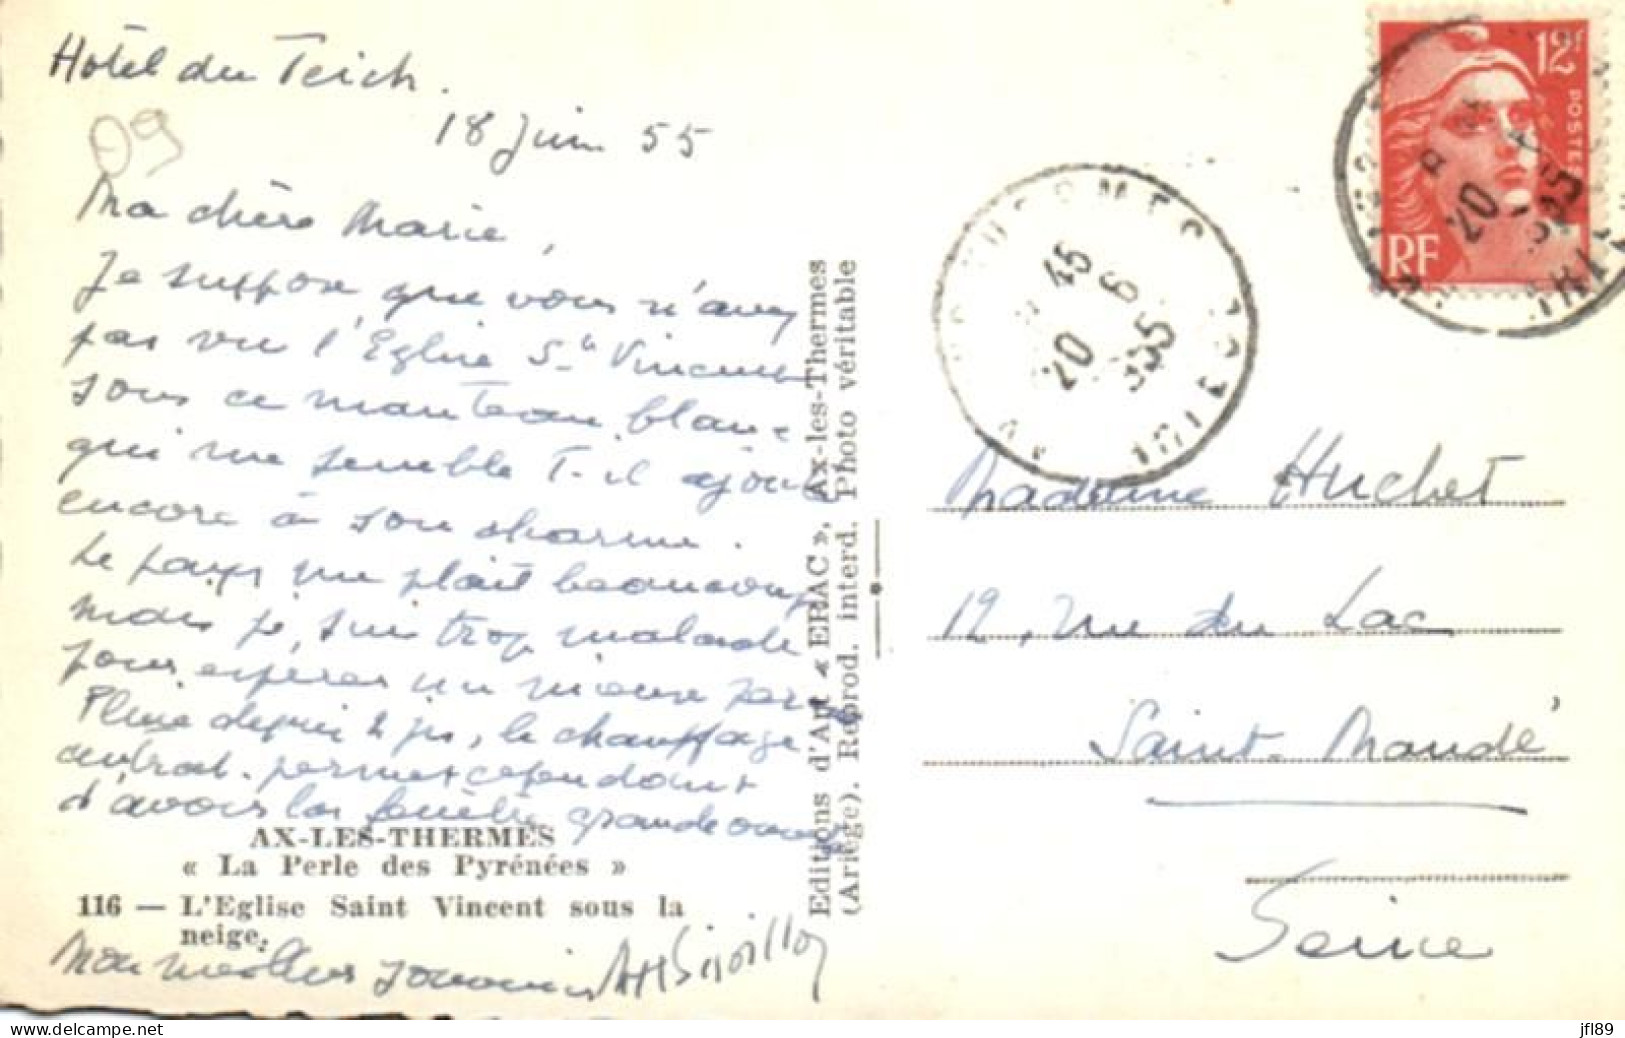 Hôtel du Teich.
18 Juin 55
09
Ma chère Marie,
Je suppose que vous n'avez
pas vu l'Eglise St Vincent
sous ce manteau blanc
qui me semble t-il ajoute
encore à son charme.
Le pays me plait beaucoup
mais je suis trop malade
pour espérer un mieux
Pluie depuis 2 jrs, le chauffage
central permet cependant
d'avoir les fenêtres grande ouvertes
AX-LES-THERMES
« La Perle des Pyrénées »
116 — L'Eglise Saint Vincent sous la
neige.
Mon meilleur souvenir
Editions d'Art « ERAC », Ax-les-Thermes
(Ariège). Reprod. interd. Photo véritable
20 6
1955
12F
POSTES
RF
20
1955
Madame Huchet
12, rue du Lac
Saint-Mandé
Seine
jfl89